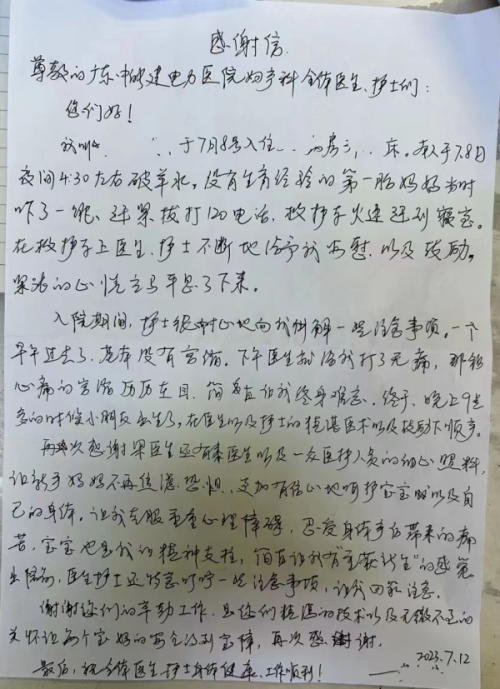 感谢信
尊敬的广东中能建电力医院妇产科全体医生、护士们：
您们好！
我叫 于7月8号入住 病房 床。本人于7.8日
夜间4:30左右破羊水，没有生育经验的第一胎妈妈当时
吓了一跳、赶紧拨打120电话，救护车火速送到
在救护车上医生、护士不断地给予我安慰以及鼓励。
紧张的心情立马平息了下来。
入院期间，护士很耐心地向我讲解一些注意事项。一个
早午过去了，基本没有宫缩。下午医生就给我打了无痛，那种
心痛的宫缩历历在目，简直让我终身难忘。终于，晚上9点
多的时候小朋友出生了，在医生以及护士的精湛医术以及鼓励下顺产。
再次感谢 医生还有秦医生以及一众医护人员的细心照料，
让新手妈妈不再焦虑、恐惧、更加有信心地呵护宝宝以及自
己的身体。让我克服重重心理障碍，忍受身体上带来的痛
苦，宝宝也是我的精神支柱，简直让我有"重获新生"的感觉
出院前，医生护士还特意叮咛一些注意事项，让我回家注意。
谢谢您们的辛勤工作，是您们精湛的技术以及无微不至的
关怀让每个宝妈的安全得到宝障，再次感谢。
最后，祝全体医生、护士身体健康、工作顺利！
2023.7.12